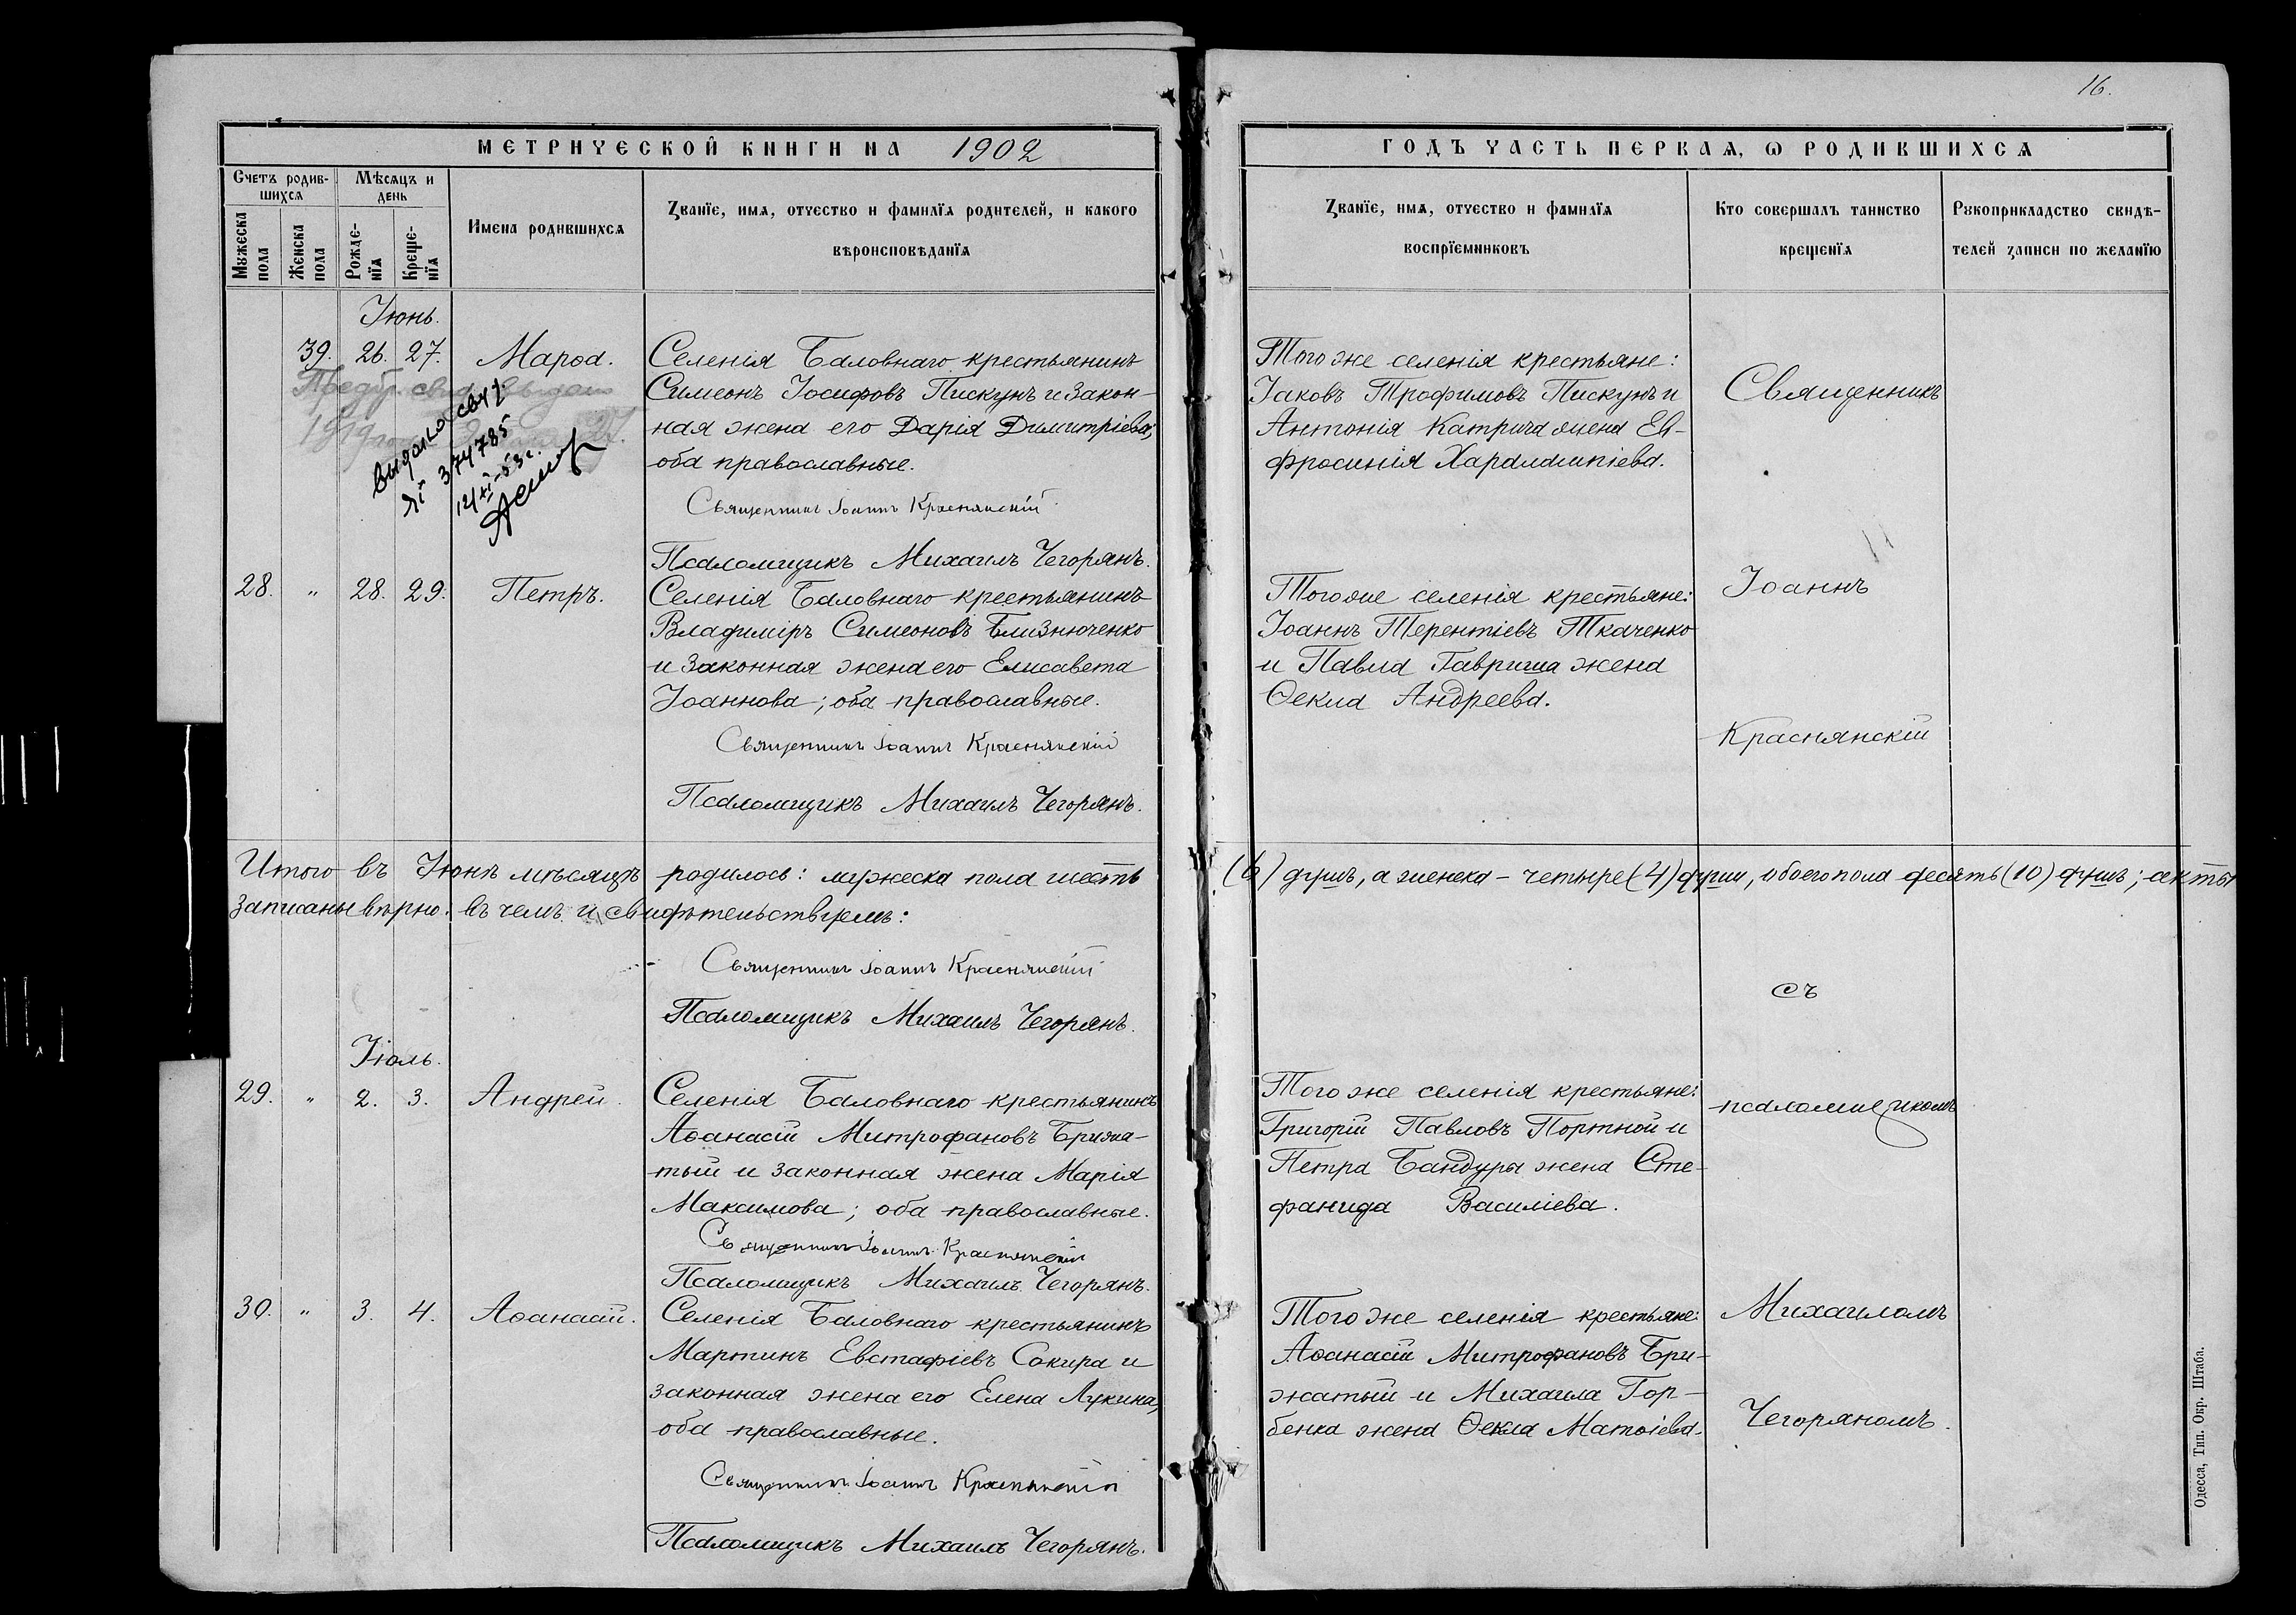 16.
МЕТРИЧЕСКОЙ КНИГИ НА 1902
Счетъ родив-
шихся
Мѣсяцъ и
день
Мужеска
пола
Женска
пола
Рожде-
нїя
Креще-
нїя
Имена родившихся
Званїе, имя, отчество и фамилїя родителей, и какого
вѣроисповѣданїя
Іюнь.
39. 26. 27. Марѳа.
Селенія Баловнаго крестьянинъ
Симеонъ Іосифовъ Пискунъ и закон-
ная жена его Дарія Димитріева;
оба православные.
Священникъ Іоаннъ Краснянскій
Псаломщикъ Михаилъ Чегорянъ.
1919
374785
12/XI-53г.
28. „ 28. 29. Петръ.
Селенія Баловнаго крестьянинъ
Владиміръ Симеоновъ Близнюченко
и законная жена его Елисавета
Іоаннова; оба православные.
Священникъ Іоаннъ Краснянскій
Псаломщикъ Михаилъ Чегорянъ.
Итого въ Іюнѣ мѣсяцѣ родилось: мужеска пола шесть
(6) душъ, а женска – четыре (4) души, обоего пола десять (10) душъ; акты
записаны вѣрно. въ чемъ и свидѣтельствуемъ:
Священникъ Іоаннъ Краснянскій
Псаломщикъ Михаилъ Чегорянъ.
Іюль.
29. „ 2. 3. Андрей.
Селенія Баловнаго крестьянинъ
Аѳанасій Митрофановъ Брижа-
тый и законная жена Марія
Максимова; оба православные.
Священникъ Іоаннъ Краснянскій
Псаломщикъ Михаилъ Чегорянъ.
30. „ 3. 4. Аѳанасій.
Селенія Баловнаго крестьянинъ
Мартинъ Евстафіевъ Сокира и
законная жена его Елена Лукина,
оба православные.
Священникъ Іоаннъ Краснянскій
Псаломщикъ Михаилъ Чегорянъ.
ГОДЪ ЧАСТЬ ПЕРВАЯ, Ѡ РОДИВШИХСЯ
Званїе, имя, отчество и фамилїя
воспрїемниковъ
Кто совершалъ таинство
крещенїя
Рукоприкладство свидѣ-
телей записи по желанїю
Того же селенія крестьяне:
Іаковъ Трофимовъ Пискунъ и
Антонія Катрича жена Ев-
фросинія Харалампіева.
Того же селенія крестьяне:
Іоаннъ Терентіевъ Ткаченко
и Павла Гавриша жена
Ѳекла Андреева.
Того же селенія крестьяне:
Григорій Павловъ Портной и
Петра Бандуры жена Сте-
фанида Василіева.
Того же селенія крестьяне:
Аѳанасій Митрофановъ Бри-
жатый и Михаила Гор-
бенка жена Ѳекла Матѳіева.
Священникъ
Іоаннъ
Краснянскій
съ
псаломщикомъ
Михаиломъ
Чегоряномъ.
Одесса, Тип. Окр. Штаба.